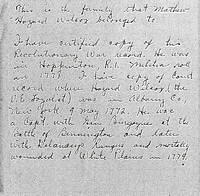 This is the family that Mathew
Hazard Wilcox belonged to
I have certified copy of his
Revolutionary War record. He was
in Hopkinton R.I. Militia roll
in 1777. I have copy of Court
record where Hazard Wilcox (the
U.E. Loyalist) was in Albany Co,
New York 9 May 1772. He was
a Capt with Gen Burgoynes at the
battle of Bennington and later
with Delanceys Rangers and mortally
wounded at White Plains in 1779.